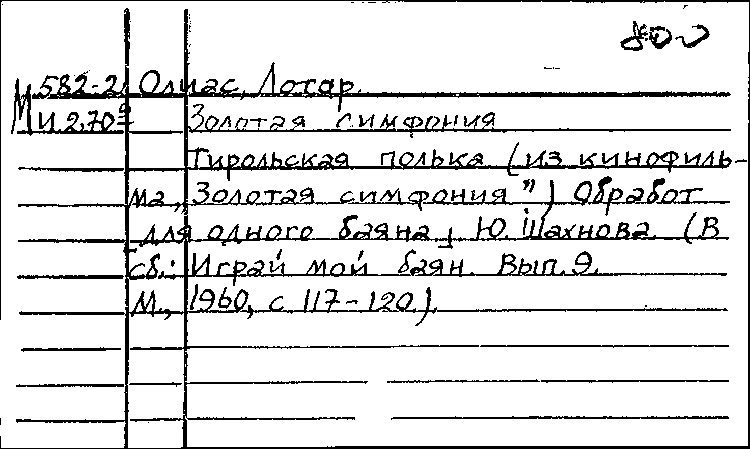 М 582-2 Олиас, Лотар.
М и 2.70 Золотая симфония
Тирольская полька (из кинофиль-
ма „Золотая симфония") Обработ
для одного баяна Ю. Шахнова. (В
сб.: Играй мой баян. Вып. 9.
М., 1960, с. 117-120).